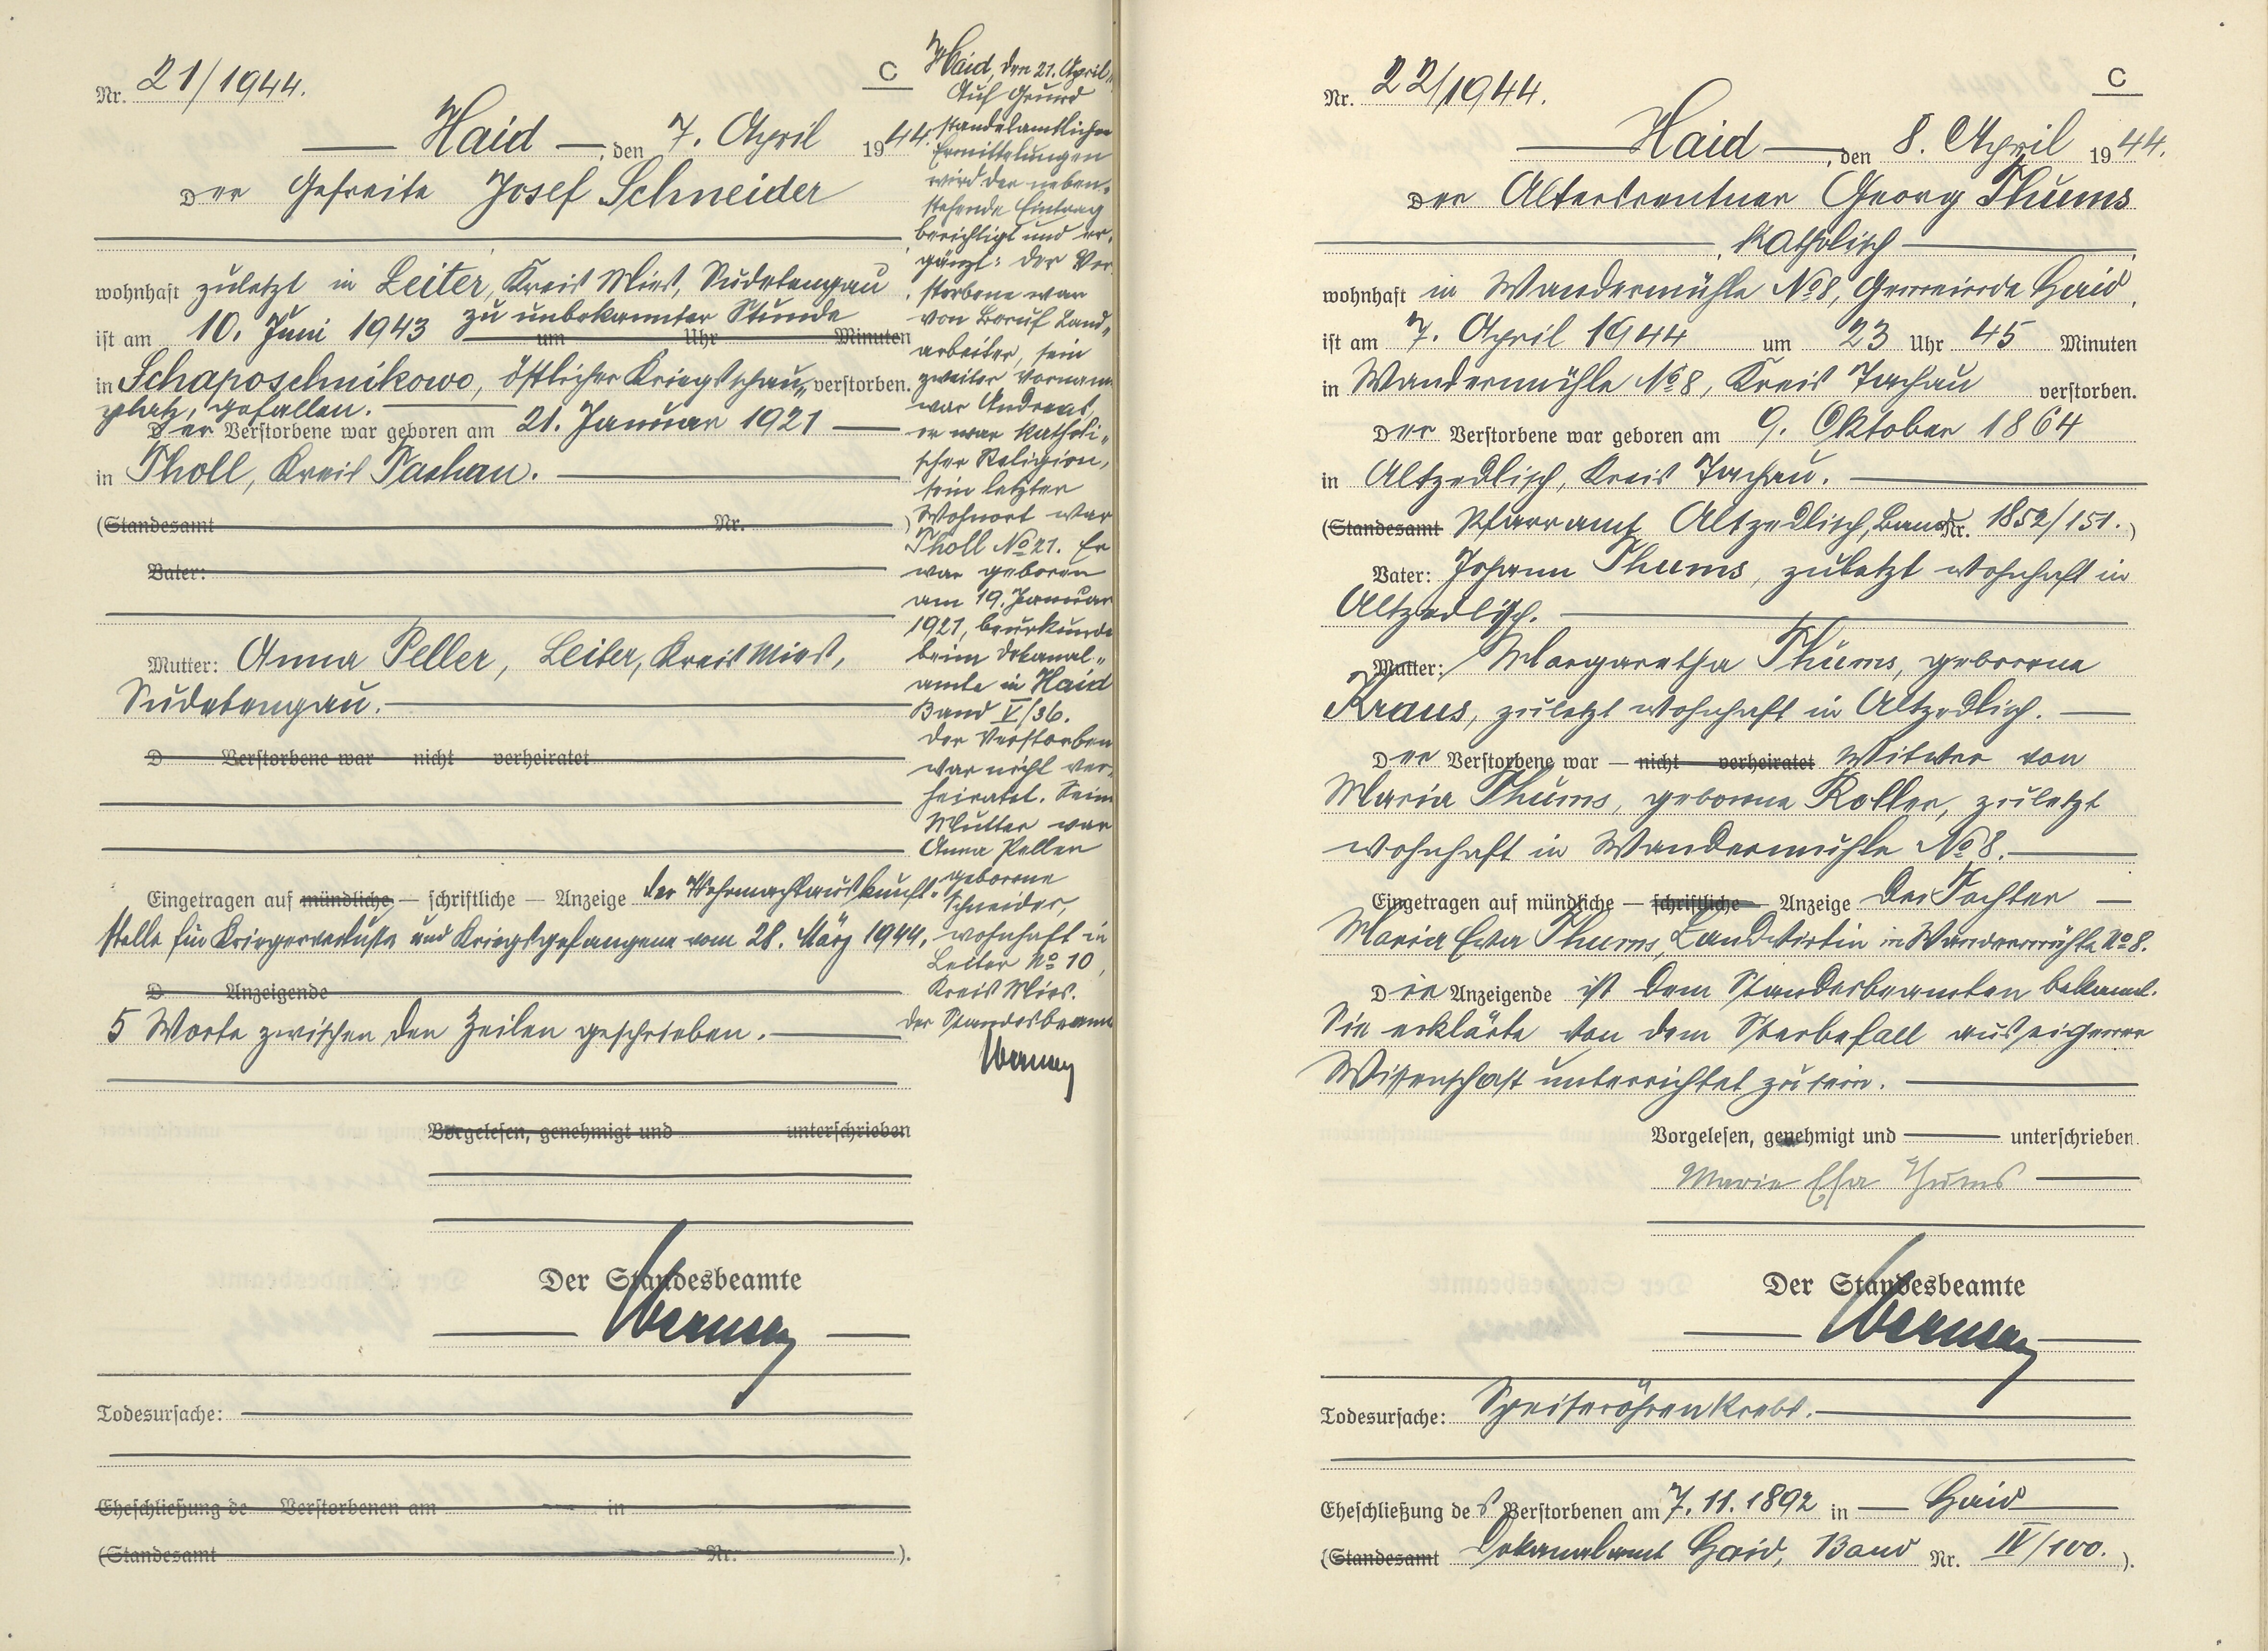 Nr. 21/1944.
C
Haid, den 7. April 1944.
Der Gefreite Josef Schneider
wohnhaft zuletzt in Leiter, Kreis Mies, Sudetengau
zu unbekannter Stunde
ist am 10. Juni 1943 um Uhr Minuten
in Schaposchnikowo, östlicher Kriegsschau„ verstorben.
platz, gefallen.
Der Verstorbene war geboren am 21. Januar 1921
in Tholl, Kreis Tachau.
(Standesamt Nr. )
Vater:
Mutter: Anna Peller, Leiter, Kreis Mies,
Sudetengau.
D Verstorbene war nicht verheiratet
Eingetragen auf mündliche — schriftliche — Anzeige der Wehrmachtauskunft„
stelle für Kriegerverluste und Kriegsgefangene vom 28. März 1944.
D Anzeigende
5 Worte zwischen den Zeilen geschrieben.
Vorgelesen, genehmigt und unterschrieben
Der Standesbeamte
Todesursache:
Eheschließung de Verstorbenen am in
(Standesamt Nr. ).
Haid, den 21. April
Auf Grund
standesamtlicher
Ermittelungen
wird der neben„
stehende Eintrag
berichtigt und er„
gänzt: Der Ver„
storbene war
von Beruf Land„
arbeiter, sein
zweiter Vorname
war Andreas,
er war katholi„
scher Religion,
sein letzter
Wohnort war
Tholl No 21. Er
war geboren
am 19. Januar
1921, beurkundet
beim Dekanal„
amte in Haid
Band V/36.
Der Verstorbene
war nicht ver„
heiratet. Seine
Mutter war
Anna Peller
geborene
Schneider,
wohnhaft in
Leiter No 10,
Kreis Mies.
Der Standesbeamte
Nr. 22/1944.
C
Haid, den 8. April 1944.
Der Altersrentner Georg Thums
, katholisch
wohnhaft in Wandermühle No 8, Gemeinde Haid,
ist am 7. April 1944 um 23 Uhr 45 Minuten
in Wandermühle No 8, Kreis Tachau verstorben.
Der Verstorbene war geboren am 9. Oktober 1864
in Altzedlisch, Kreis Tachau.
(Standesamt Pfarramt Altzedlisch, Band Nr. 1852/151.)
Vater: Johann Thums, zuletzt wohnhaft in
Altzedlisch.
Mutter: Margaretha Thums, geborene
Kraus, zuletzt wohnhaft in Altzedlisch.
Der Verstorbene war — nicht verheiratet Witwer von
Maria Thums, geborene Roller, zuletzt
wohnhaft in Wandermühle No 8.
Eingetragen auf mündliche — schriftliche — Anzeige der Tochter
Maria Eva Thums, Landwirtin in Wandermühle No 8.
Die Anzeigende ist dem Standesbeamten bekannt.
Sie erklärte von dem Sterbefall aus eigener
Wissenschaft unterrichtet zu sein.
Vorgelesen, genehmigt und unterschrieben
Marie Efa Thums
Der Standesbeamte
Todesursache: Speiseröhrenkrebs.
Eheschließung des Verstorbenen am 7.11.1892 in Haid
(Standesamt Dekanalamt Haid, Band Nr. IV/100. ).